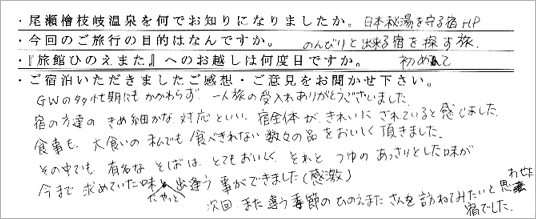 ・尾瀬檜枝岐温泉を何でお知りになりましたか。日本秘湯を守る宿HP
・今回のご旅行の目的はなんですか。のんびりと出来る宿を探す旅.
・『旅館ひのえまた』へのお越しは何度目ですか。初めて
・ご宿泊いただきましたご感想・ご意見をお聞かせ下さい。
GWの多忙期にもかかわらず、一人旅の受入れありがとうございました。
宿の方達のきめ細かな対応といい、宿全体がきれいにされていると感じました。
食事も、大食いの私でも食べきれない数々の品をおいしく頂きました。
その中でも有名なそばは、とてもおいしく、それとつゆのあっさりとした味が
今まで求めていた味にやっと出逢う事ができました(感激)
次回また違う季節のひのえまたさんを訪ねてみたいと思わせた
宿でした。